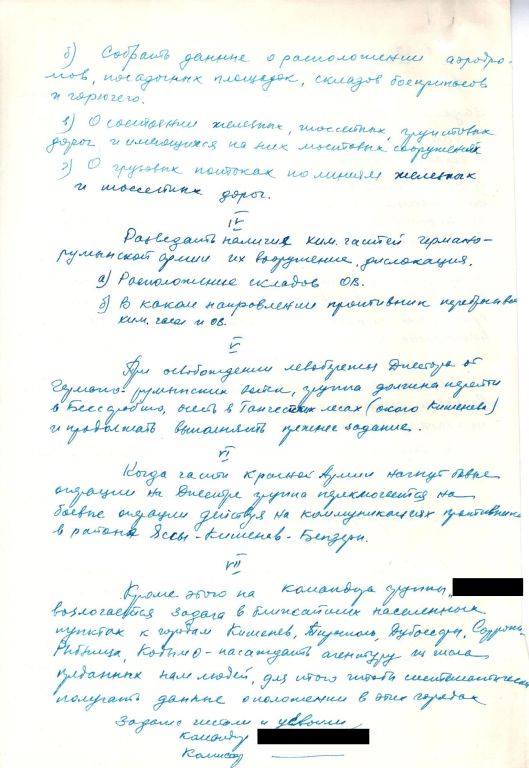 б) Собрать данные о расположении аэродро-
мов, посадочных площадок, складов боеприпасов
и горючего.
в) О состоянии железных, шоссейных, грунтовых
дорог и имеющихся на них мостовых сооружений
г) О грузовых потоках по линиям железных
и шоссейных дорог.
IV
Разведать наличие хим. частей германо-
румынской армии их вооружение, дислокация.
а) Расположение складов ОВ.
б) В каком направлении противник
хим. части и ОВ.
V
При освобождении левобережья Днестра от
Германо-румынских группа должна перейти
в Бессарабию, осесть в лесах (около Кишенева)
и продолжать выполнять прежнее задание.
VI
Когда части Красной Армии начнут боевые
операции на Днестре группа переключается на
боевые операции действуя на коммуникациях противника
в районе Яссы-Кишенев-Бендеры.
VII
Кроме этого на командира группы
возлогается задача в ближайших населенных
пунктах к городам Кишенев, Тирасполь, Дубоссары,
Рыбница, насаждать агентуру из числа
преданных нам людей, для того чтобы систематически
получать данные о положении в этих городах
Задание читали и усвоили
Командир
Комиссар